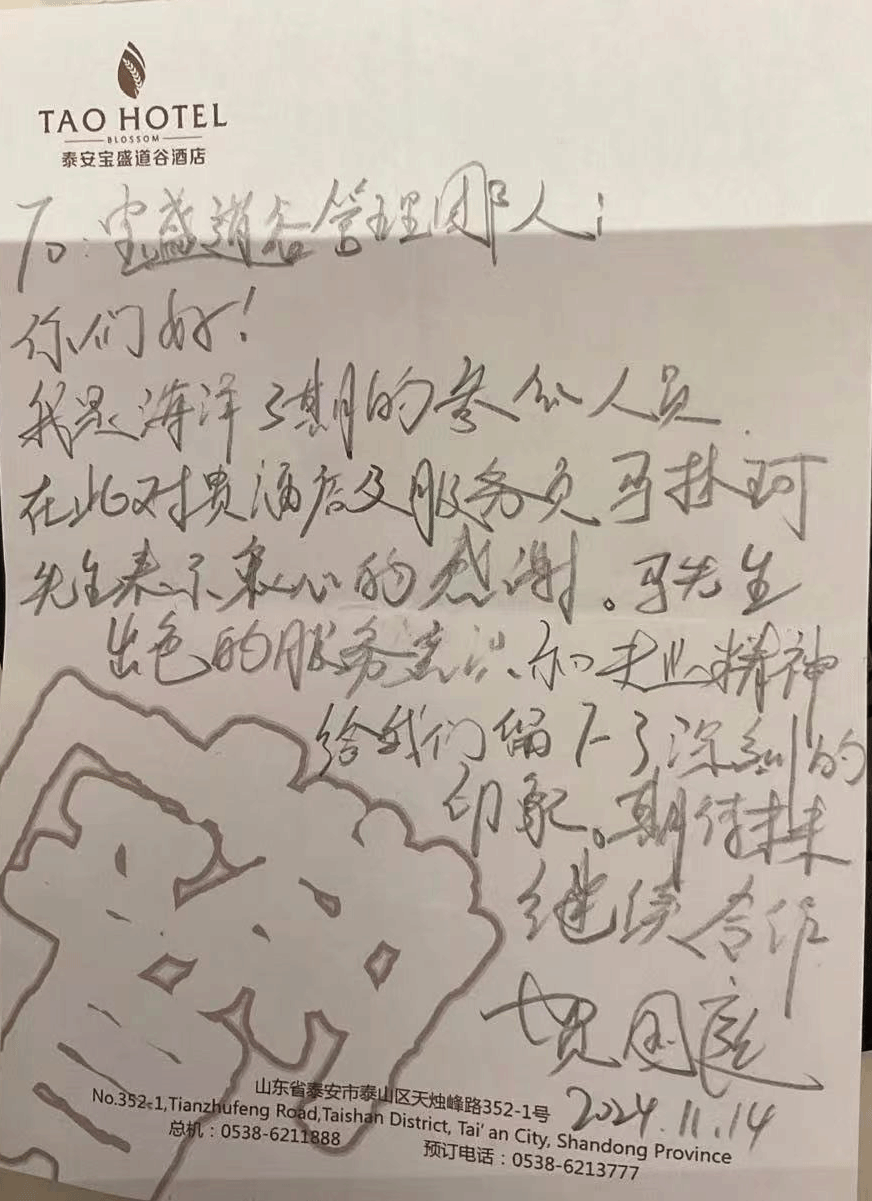 TAO HOTEL
BLOSSOM
泰安宝盛道谷酒店
To: 宝盛道谷管理团队人:
你们好!
我是海洋3期的参会人员.
在此对贵酒店及服务员马林珂
先生表示衷心的感谢。马先生
出色的服务意识和专业精神
给我们留下了深刻的
印象。期待未来
继续合作
2024.11.14
山东省泰安市泰山区天烛峰路352-1号
No.352-1,Tianzhufeng Road,Taishan District, Tai'an City, Shandong Province
总机:0538-6211888
预订电话:0538-6213777